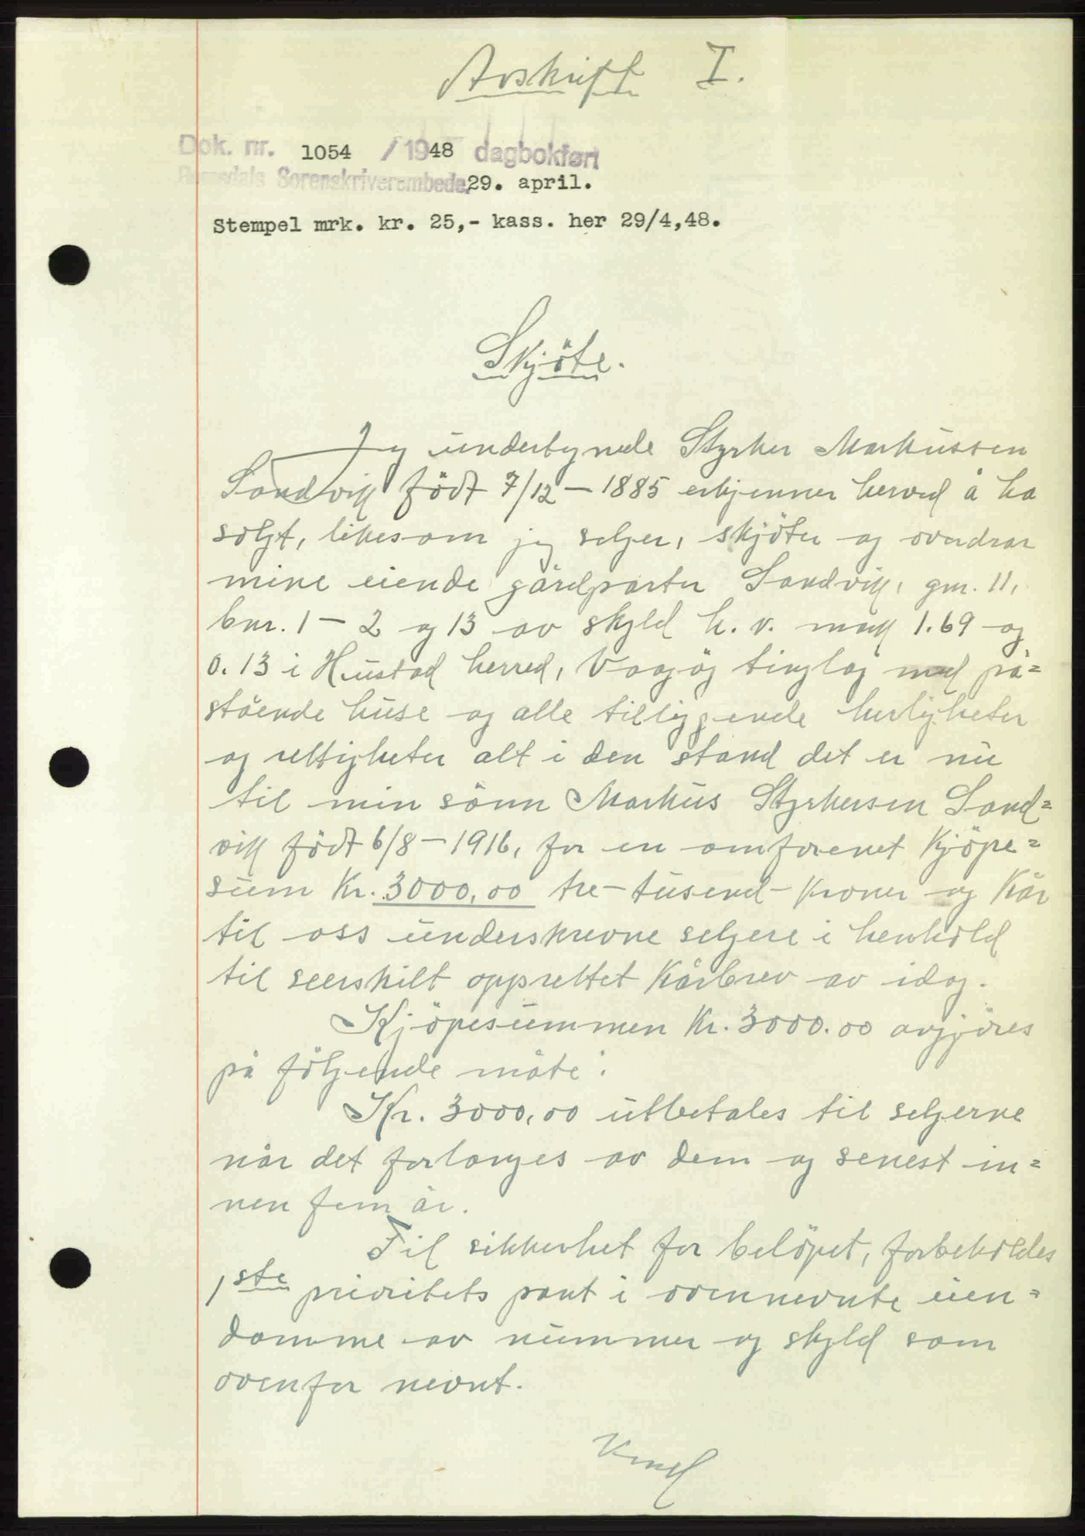 Avskrift I.
Dok. nr. 1054 / 1948 dagbokført
Romsdals Sorenskriverembede, 29. april.
Stempel mrk. kr. 25,- kass. her 29/4,48.
Skjöte.
Jeg undertegnede Styrker Markussen
Sandvik födt 7/12 - 1885 erkjenner herved å ha
solgt, likesom jeg selger, skjöter og overdrar
mine eiende gårdparter Sandvik, gnr. 11,
bnr. 1 - 2 og 13 av skyld h. v. mark 1.69 og
0.13 i Hustad herred, Vågöy tinglag med på=
stående huse og alle tilliggende herligheter
og rettigheter alt i den stand det er nu
til min sönn Markus Styrkersen Sand=
vik födt 6/8 - 1916, for en omforenet kjöpe=
sum kr. 3000,00 tre - tusend - kroner og kår
til oss underskrevne selgere i henhold
til seerskilt opprettet kårbrev av idag.
Kjöpesummen kr. 3000.00 avgjöres
på fölgende måte:
Kr. 3000,00 utbetales til selgerne
når det forlanges av dem og senest in=
nen fem år.
Til sikkerhet for belöpet, forbeholdes
1ste prioritets pant i ovennevnte eien=
domme av nummer og skyld som
ovenfor nevnt.